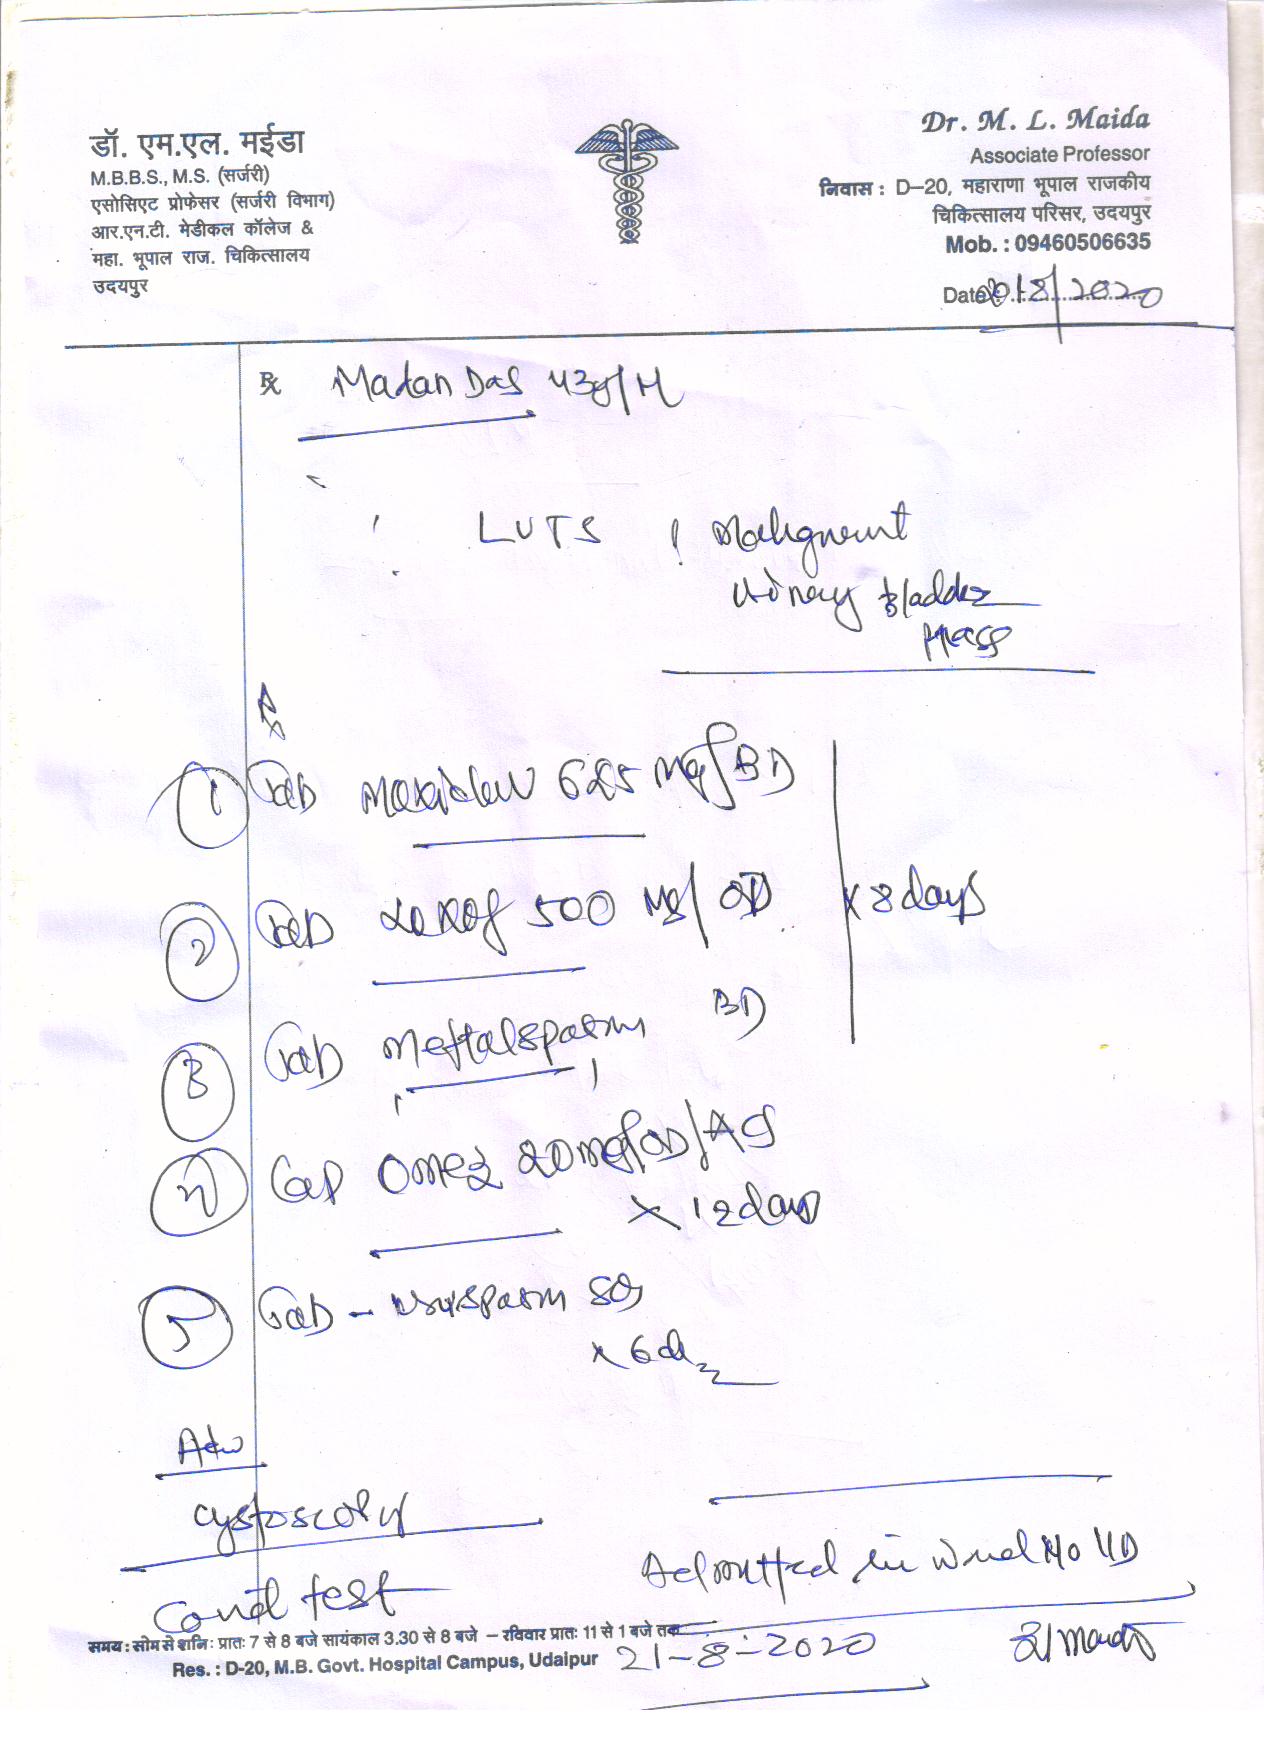 डॉ. एम.एल. मईडा
M.B.B.S., M.S. (सर्जरी)
एसोसिएट प्रोफेसर (सर्जरी विभाग)
आर.एन.टी. मेडीकल कॉलेज &
महा. भूपाल राज. चिकित्सालय
उदयपुर
Dr. M. L. Maida
Associate Professor
निवास : D-20, महाराणा भूपाल राजकीय
चिकित्सालय परिसर, उदयपुर
Mob. : 09460506635
Date 8/2020
℞ Madan Das 43y/M
LUTS ! Malignant
Urinary Bladder
Mass
Rx
1 Tab Moxiclav 625 Mg/BD
2 Tab 500 Mg/OD x 8 days
3 Tab Meftalspasm BD
4 Cap Omez 20mg/OD/AC
x 12 days
5 Tab - Uruspasm SOS
x 6d
Adv
Cystoscopy
Covid test
Admitted in Ward No
21-8-2020
समय : सोम से शनि: प्रातः 7 से 8 बजे सायंकाल 3.30 से 8 बजे – रविवार प्रातः 11 से 1 बजे तक
Res. : D-20, M.B. Govt. Hospital Campus, Udaipur